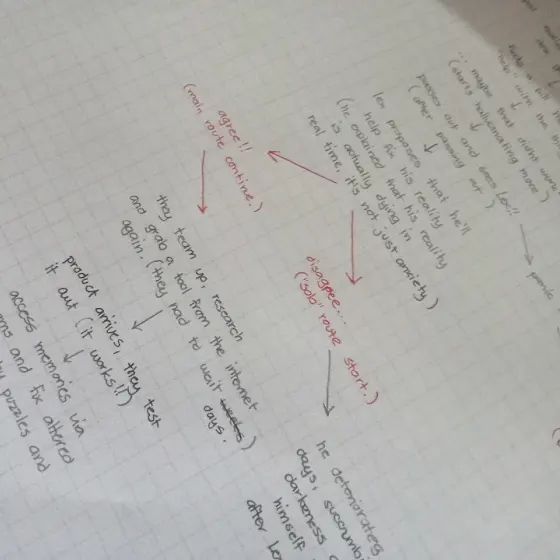 took a pill
help with the
↓
maybe that didnt work
(starts hallucinating more)
↓
passes out and sees Lev!!
(after passing out)
↓
lev proposes that he'll
help fix his reality
(he explained that his reality
is actually dying in
real time, it's not just anxiety)
panic
agree!!
(main route continue.)
they team up, research
and grab a tool from the internet
again. (they had to wait days.)
↓
product arrives, they test
it out (it works!!)
↓
access memories via
and fix altered
puzzles and
disagree...
("solo" route start.)
he deteriorates
days, succumb
darkness
himself
after